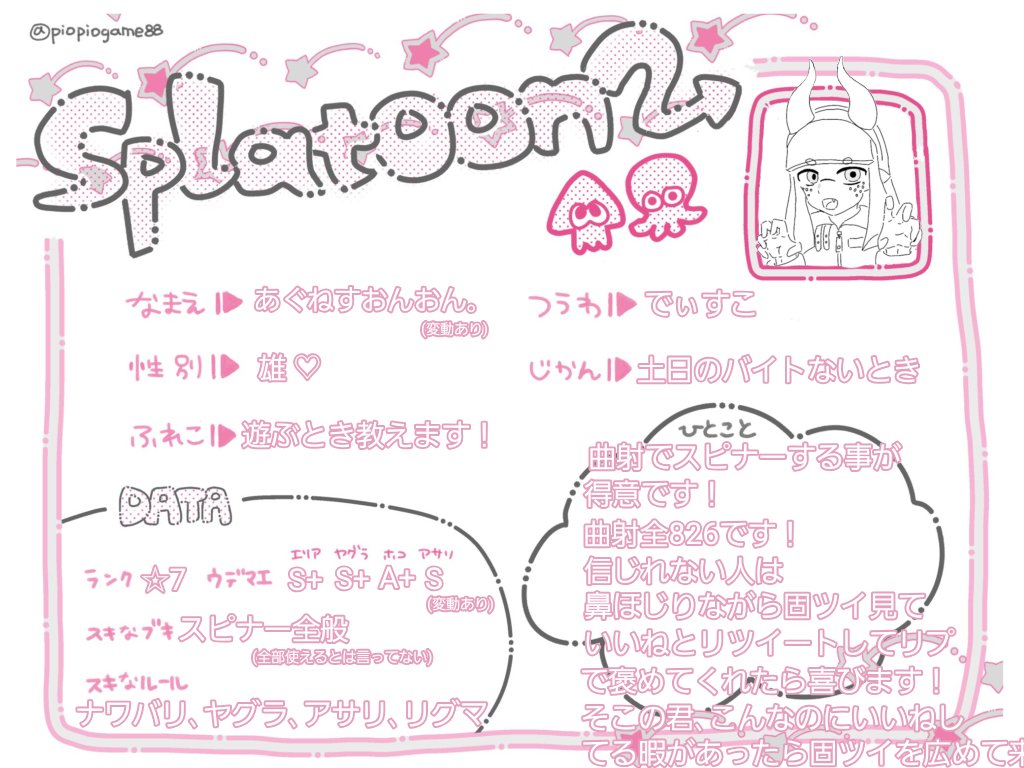 @piopiogame88
Splatoon2
なまえ あぐねすおんおん。
(変動あり)
つうわ でぃすこ
性別 雄♡
じかん 土日のバイトないとき
ふれこ 遊ぶとき教えます！
DATA
エリア ヤグラ ホコ アサリ
ランク ☆7 ウデマエ S+ S+ A+ S
(変動あり)
スキなブキ スピナー全般
(全部使えるとは言ってない)
スキなルール
ナワバリ、ヤグラ、アサリ、リグマ
ひとこと
曲射でスピナーする事が
得意です！
曲射全826です！
信じれない人は
鼻ほじりながら固ツイ見て
いいねとリツイートしてリプ
で褒めてくれたら喜びます！
そこの君、こんなのにいいねし
てる暇があったら固ツイを広めて来